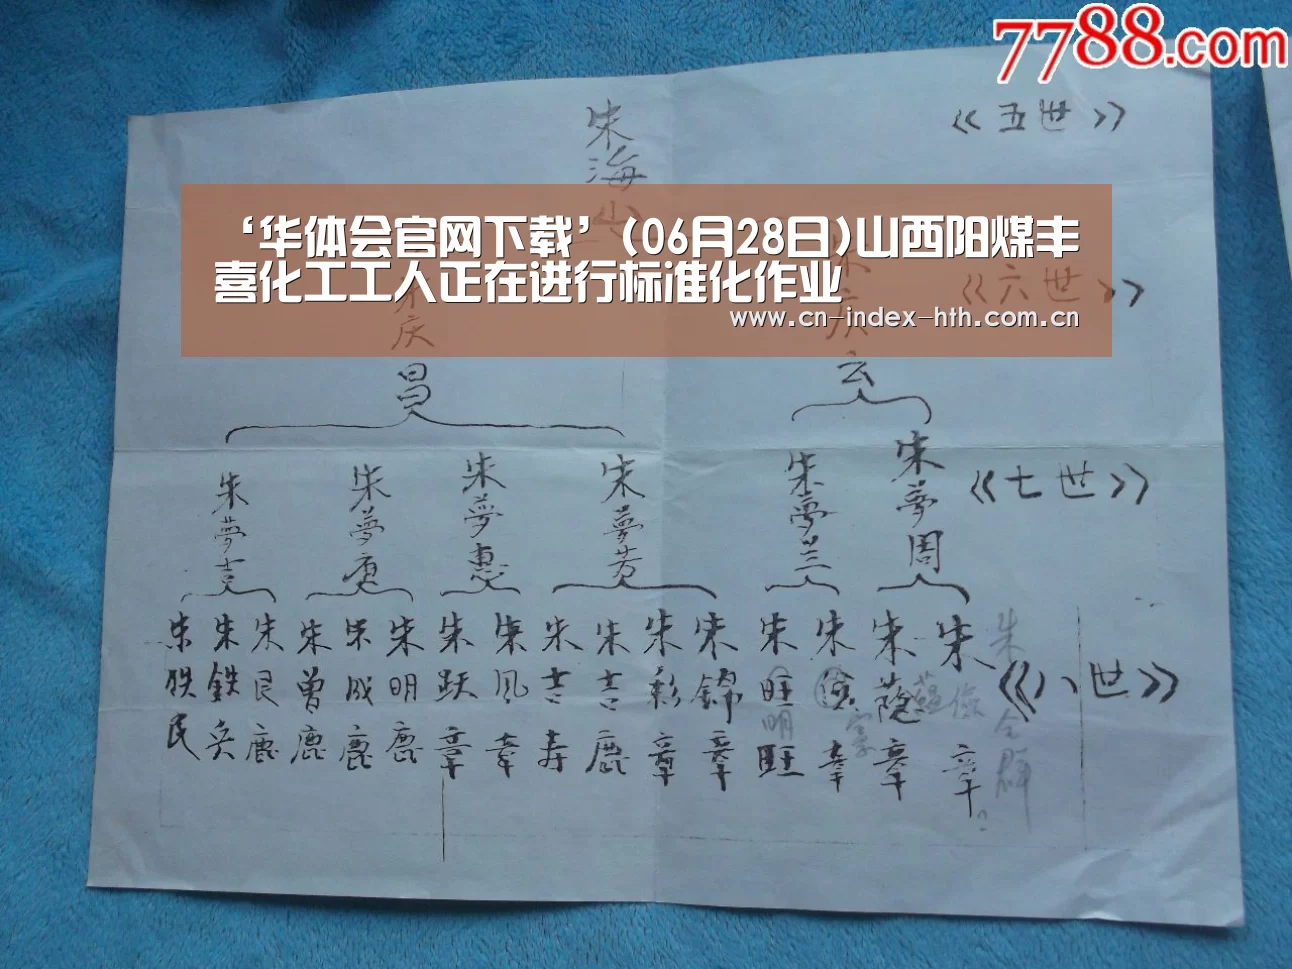 7788.com
朱海山
《五世》
‘华体会官网下载’(06月28日)山西阳煤丰
喜化工工人正在进行标准化作业
www.cn-index-hth.com.cn
庆昌
庆云
《六世》
朱夢吉
朱夢庚
朱夢惠
朱夢芳
朱夢兰
朱夢周
《七世》
朱铁民
朱鉄兵
朱艮鹿
朱曾鹿
朱成鹿
朱明鹿
朱跃章
朱风章
朱吉寿
朱吉鹿
朱彩章
朱錦章
朱旺旺
明
朱儉章
朱蔭章
蘊
朱章
儉
朱全群
《八世》